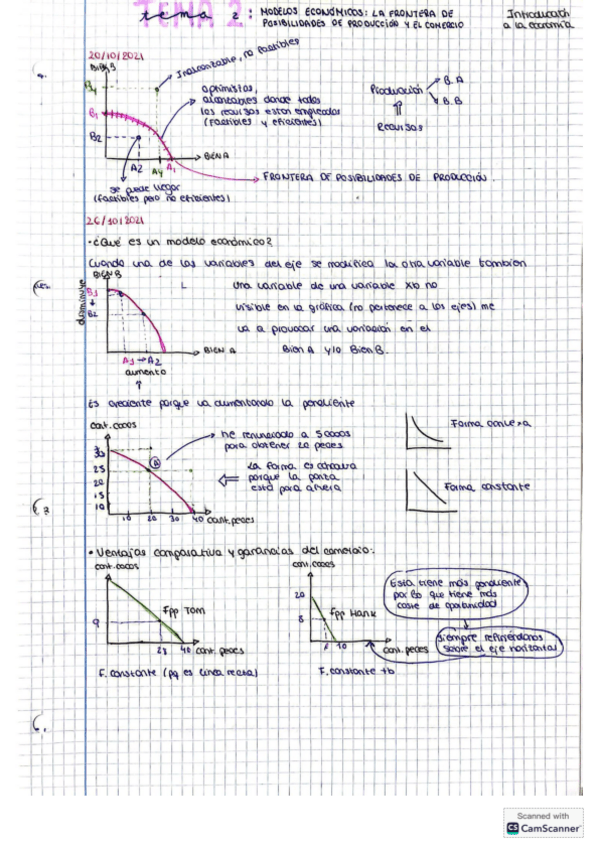 TEMA 2
tema 2: MODELOS ECONÓMICOS: LA FRONTERA DE
POSIBILIDADES DE PRODUCCIÓN Y EL COMERCIO
Introducción
a la economía
20/10/2021
BIEN B
Inalcanzable, no factibles
B1
B2
A2 A4 A1
BIEN A
optimistas,
alcanzables donde todos
los recursos están empleados
(factibles y eficientes)
Producación
B.A
B.B
Recursos
se puede llegar
(factibles pero no eficientes)
FRONTERA DE POSIBILIDADES DE PRODUCCIÓN.
26/10/2021
· ¿Qué es un modelo económico?
Cuando una de las variables del eje se modifica la otra variable también
BIEN B
disminuye
B1
B2
A1 → A2
BIEN A
aumento
una variable de una variable xb no
visible en la gráfica (no pertenece a los ejes) me
va a provocar una variación en el
Bien A y/o Bien B.
Es creciente porque va aumentando la pendiente
cant. cocos
30
25
20
15
10
10 20 30 40 cant. peces
he renunciado a 5 cocos
para obtener 20 peces
La forma es cóncava
porque la panza
está para afuera
Forma convexa
Forma constante
• Ventajas comparativa y ganancias del comercio:
cant. cocos
FPP TOM
9
28 40 cant. peces
F. constante (pq es línea recta)
cant. cocos
20
8
FPP Hank
10
cant. peces
F. constante tb
Esta tiene más pendiente
por lo que tiene más
coste de oportunidad
siempre refiriéndonos
sobre el eje horizontal
Scanned with
CS CamScanner